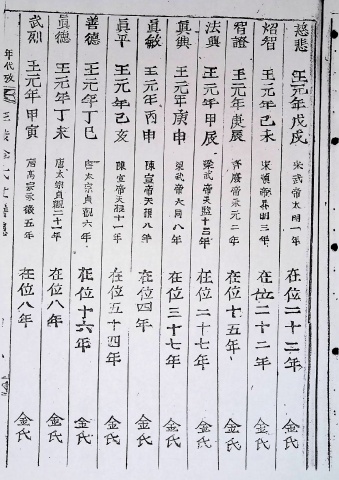 慈悲 王元年戊戌 宋武帝大明二年 在位二十二年 金氏
炤智 王元年己未 宋順帝昇明三年 在位二十二年 金氏
智證 王元年庚辰 齊廢帝永元二年 在位十五年 金氏
法興 王元年甲辰 梁武帝天監十三年 在位二十七年 金氏
眞興 王元年庚申 梁武帝大同八年 在位三十七年 金氏
眞智 王元年丙申 陳宣帝天授八年 在位四年 金氏
眞平 王元年己亥 陳宣帝天授十一年 在位五十四年 金氏
善德 王元年丁巳 唐太宗貞觀六年 在位十六年 金氏
眞德 王元年丁未 唐太宗貞觀二十一年 在位八年 金氏
武烈 王元年甲寅 唐高宗永徽五年 在位八年 金氏
年代攷